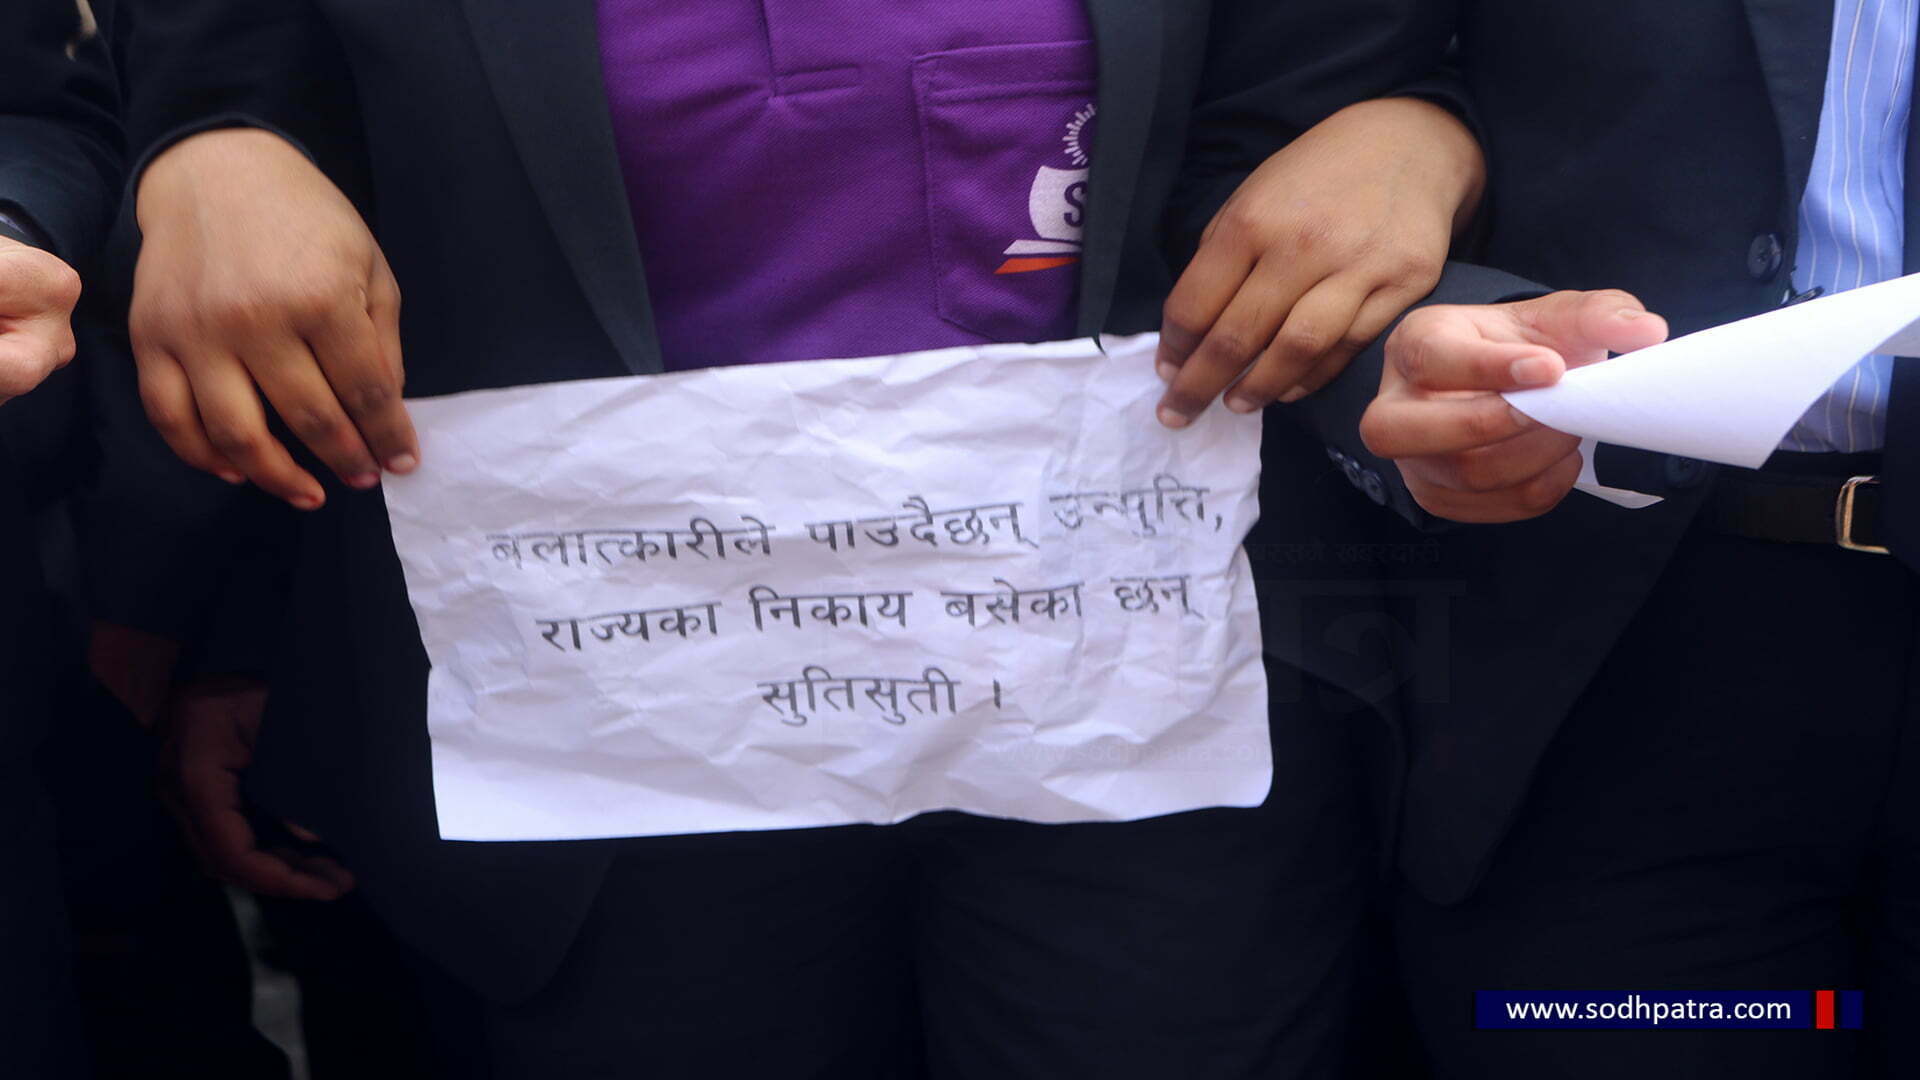 बलात्कारीले पाउदैछन् उन्मुत्ति,
राज्यका निकाय बसेका छन्
सुतिसुती ।
www.sodhpatra.com
www.sodhpatra.com